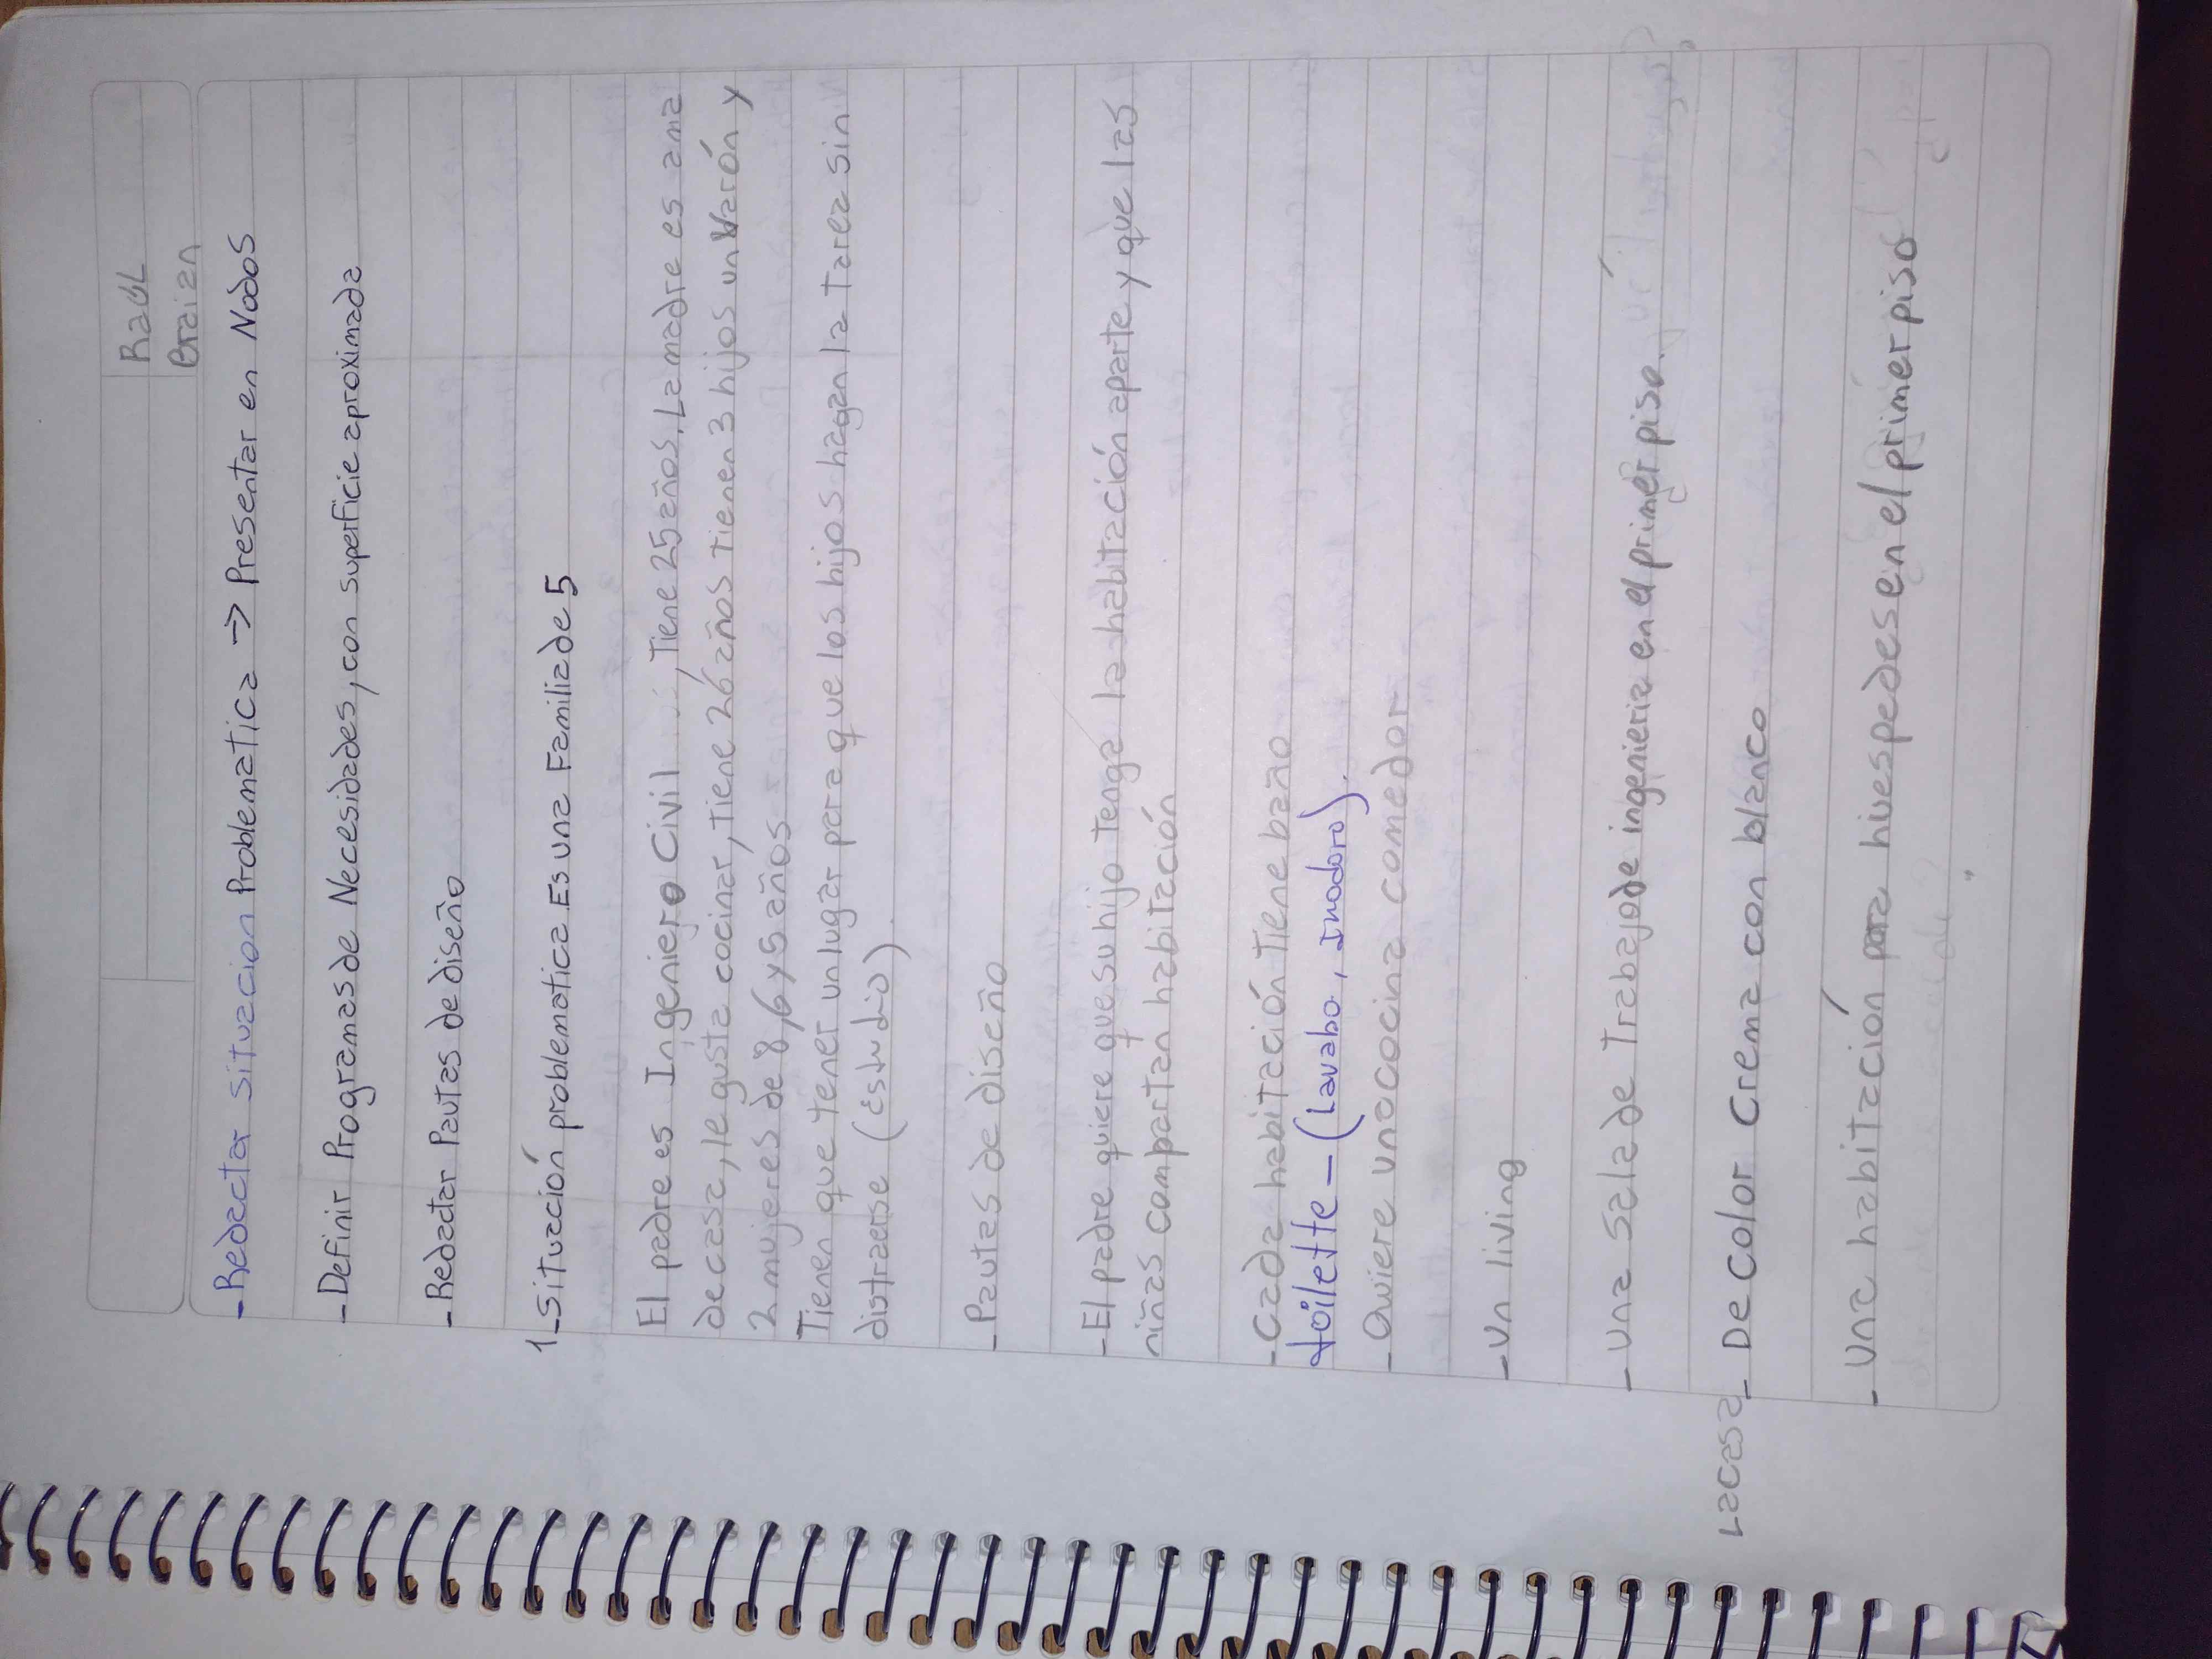 Raul
Braian
-Redactar situacion Problematica → Presentar en Nodos
-Definir Programas de Necesidades, con superficie aproximada
-Redactar Pautas de diseño
1-Situación problematica. Es una Familia de 5
El padre es Ingeniero Civil , Tiene 25 años. La madre es ama
de casa, le gusta cocinar, Tiene 26 años Tienen 3 hijos un Varón y
2 mujeres de 8, 6 y 5 años
Tienen que tener un lugar para que los hijos hagan la Tarea sin
distraerse (Estudio).
-Pautas de diseño
-El padre quiere que su hijo Tenga la habitación aparte y que las
niñas compartan habitación
-Cada habitación Tiene baño
toilette-(Lavabo, Inodoro).
-Quiere una cocina comedor
-Un living
-Una Sala de Trabajo de ingenieria en el primer piso.
La casa - De Color Crema con blanco
-Una habitación para huespedes en el primer piso